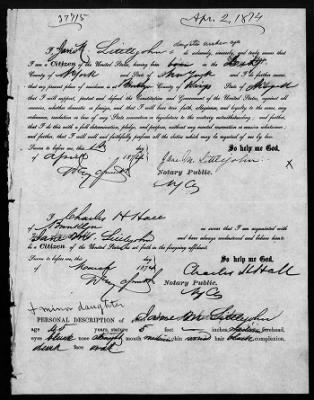 37715
Apr. 2, 1874
daughter under age
I, Jane M. Littlejohn do solemnly, sincerely, and truly swear that
I am a Citizen of the United States, having been born in the
County of N York and State of New York
that my present place of residence is at Brooklyn County of Kings State of N York
that I will support, protect and defend the Constitution and Government of the United States against all
enemies, whether domestic or foreign, and that I will bear true faith, allegiance, and loyalty to the same, any
ordinance, resolution or law of any State convention or legislature to the contrary notwithstanding, and further,
that I do this with a full determination, pledge, and purpose, without any mental reservation or evasion whatsoever,
and further, that I will well and faithfully perform all the duties which may be required of me by law.
Sworn to before me, this 1st day
So help me God.
of April 1874
Jane M. Littlejohn
Notary Public.
N Y Co
x
I Charles H Hall
of Brooklyn do swear that I am acquainted with
Jane M. Littlejohn and have always understood and believe her to
be a Citizen of the United States as set forth in the foregoing affidavit.
Sworn to before me, this day
So help me God.
of 1874
Charles H Hall
Notary Public.
N Y Co
+ minor daughter
PERSONAL DESCRIPTION of Jane M Littlejohn
age 45 years, stature 5 feet inches, forehead,
eyes black nose straight mouth medium chin round hair black complexion,
dark face oval